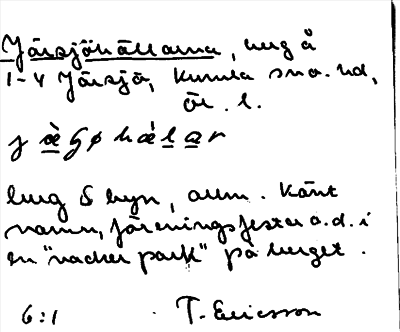 Järsjöhällarna, berg å
1-4 Järsjö, Kumla sn o. hd,
Ör. l.
j æ̀ ɧ ø h æ̀ l a r
berg S byn, allm. känt
namn, föreningsfester a.d. i
en "vacker park" på berget.
6:1 T. Ericsson